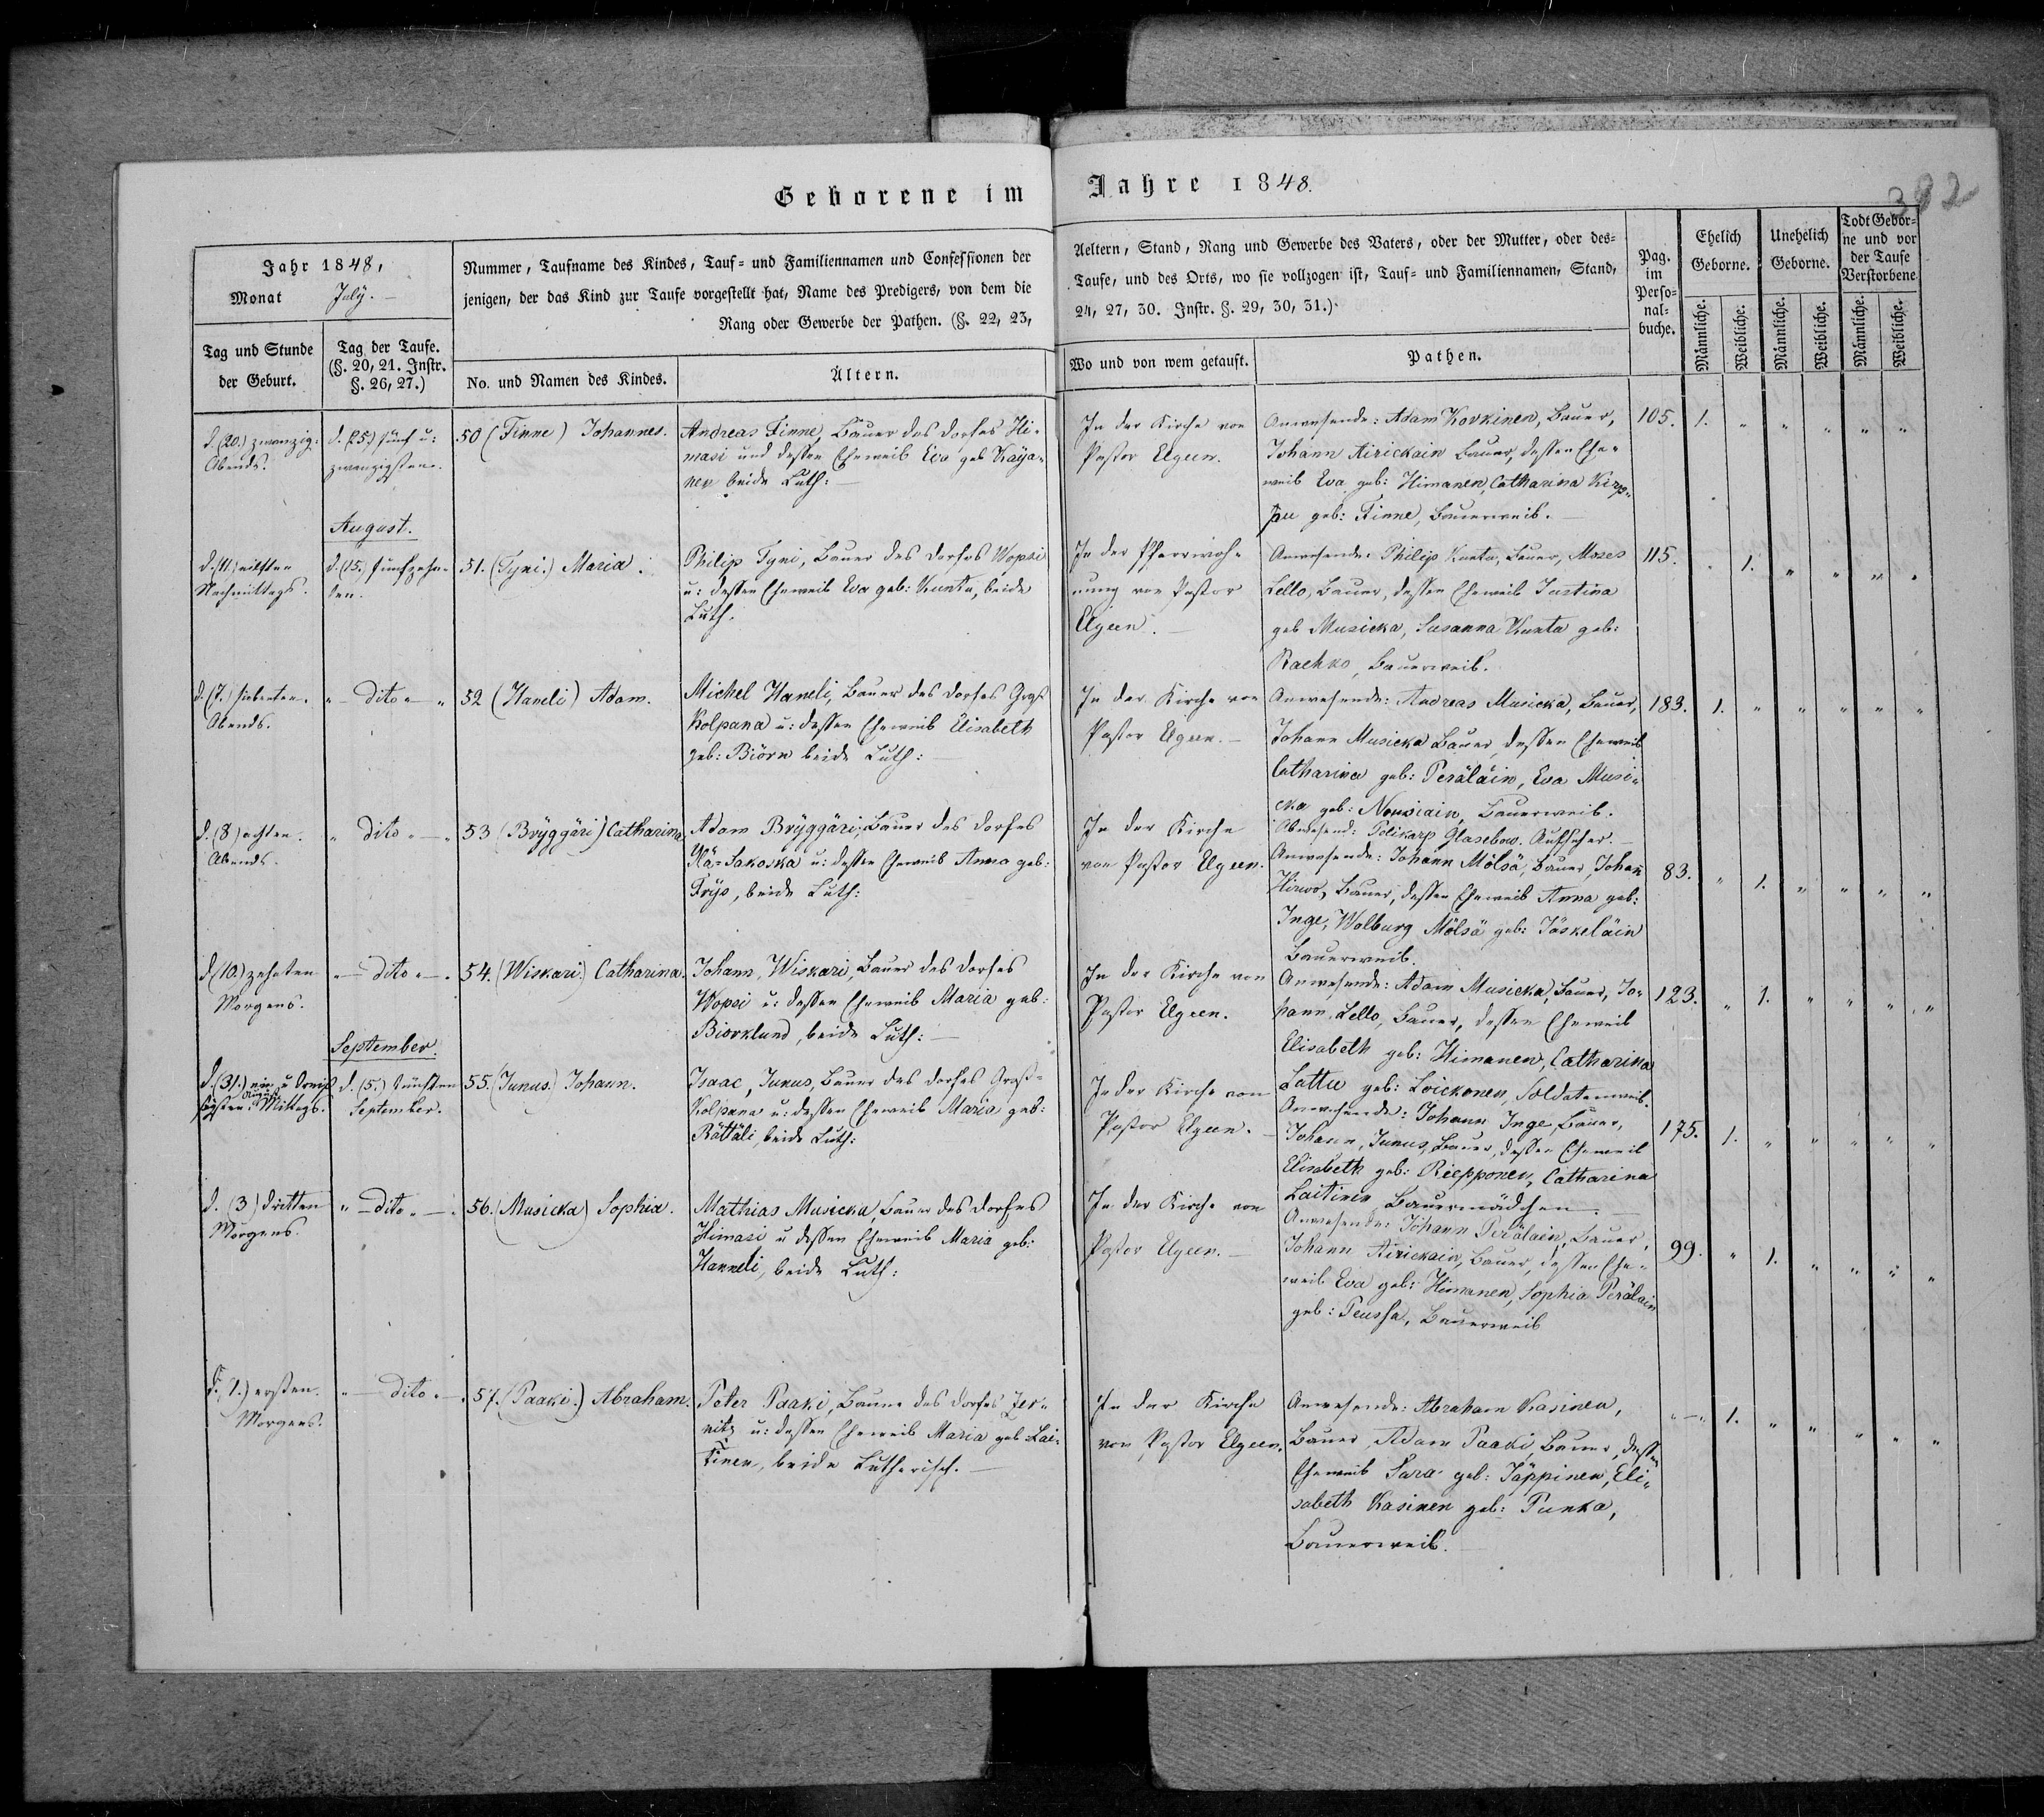 Geborene im Jahre 1848.
382
Jahr 1848,
Monat July.
Tag und Stunde
der Geburt.
Tag der Taufe.
(§. 20, 21. Instr.
§. 26, 27.)
Nummer, Taufname des Kindes, Tauf- und Familiennamen und Confessionen der
jenigen, der das Kind zur Taufe vorgestellt hat, Name des Predigers, von dem die
Rang oder Gewerbe der Pathen. (§. 22, 23,
No. und Namen des Kindes.
Ältern.
Aeltern, Stand, Rang und Gewerbe des Vaters, oder der Mutter, oder des-
Taufe, und des Orts, wo sie vollzogen ist, Tauf- und Familiennamen, Stand,
24, 27, 30. Instr. §. 29, 30, 31.)
Wo und von wem getauft.
Pathen.
Pag.
im
Perso-
nal-
buche.
Ehelich
Geborne.
Unehelich
Geborne.
Todt Gebor-
ne und vor
der Taufe
Verstorbene
Männliche.
Weibliche.
Männliche.
Weibliche.
Männliche.
Weibliche.
d. (20.) zwanzig:
Abends.
d. (25.) fünf u:
zwanzigsten.
50 (Finne) Johannes.
Andreas Finne, Bauer des Dorfes Hi-
masi und dessen Eheweib Eva geb Kaija-
nen beide Luth:
In der Kirche von
Pastor Elgeen.
Anwesende: Adam Korkinen, Bauer,
Johann Airickain Bauer, dessen Ehe-
weib Eva geb: Himanen, Catharina Kirp-
pu geb: Finne, Bauerweib.
105. 1. " " " " "
August.
d. (11.) eilften
Nachmittags.
d. (15.) fünfzehn-
ten.
51. (Tyni.) Maria.
Philip Tyni, Bauer des Dorfes Wopsi
u: dessen Eheweib Eva geb: Kunta, beide
Luth.
In der Pfarrwoh-
nung von Pastor
Elgeen.
Anwesende: Philip Kunta, Bauer, Moses
Lello, Bauer, dessen Eheweib Justina
geb Musicka, Susanna Kunta geb:
Raehko, Bauerweib.
115. " 1. " " " "
d. (7.) siebenten.
Abends.
" – dito " – "
52 (Haneli) Adam.
Michel Haneli, Bauer des Dorfes Groß
Kolpana u: dessen Eheweib Elisabeth
geb: Biörn beide Luth:
In der Kirche von
Pastor Elgeen.
Anwesende: Andreas Musicka, Bauer,
Johann Musicka Bauer, dessen Eheweib
Catharina geb: Peräläin, Eva Musi-
cka geb: Nousiain, Bauerweib.
183. 1. " " " " "
d. (8) achten.
Abends.
" dito " – "
53 (Bryggäri) Catharina
Adam Bryggäri, Bauer des Dorfes
Ylä-Sakoska u: dessen Eheweib Anna geb:
Frys, beide Luth:
In der Kirche
von Pastor Elgeen.
Abwesend: Polikarp Glasebow. Aufseher.
Anwesende: Johann Mölsä, Bauer, Johan
Hirwo, Bauer, dessen Eheweib Anna geb:
Inge, Walburg Mölsä geb: Jäskeläin
Bauerweib.
83. " 1. " " " "
d (10.) zehnten
Morgens.
" – dito " – "
54. (Wiskari) Catharina.
Johann, Wiskari, Bauer des Dorfes
Wopsi u: dessen Eheweib Maria geb:
Biorklund, beide Luth:
In der Kirche von
Pastor Elgeen.
Anwesende: Adam Musicka, Bauer, Jo-
hann Lello, Bauer, dessen Eheweib
Elisabeth geb: Himanen, Catharina
Lattu geb: Loickonen, Soldatenweib.
123. " 1. " " " "
September.
d. (31.) ein u dreiß
August
sigsten Mittags.
d. (5.) fünften
September.
55. (Junus.) Johann.
Isaac, Junus, Bauer des Dorfes Groß-
Kolpana u: dessen Eheweib Maria geb:
Rättäli, beide Luth:
In der Kirche von
Pastor Elgeen.
Anwesende: Johann Inge, Bauer,
Johann, Junus, Bauer, dessen Eheweib
Elisabeth geb: Riepponen, Catharina
Laitinen Bauermädchen.
175. 1. " " " " "
d. (3) dritten
Morgens.
" – dito " – "
56. (Musicka) Sophia.
Mathias Musicka, Bauer des Dorfes
Himasi u dessen Eheweib Maria geb:
Hanneli, beide Luth:
In der Kirche von
Pastor Elgeen.
Anwesende: Johann Peräläin, Bauer,
Johann Airickain, Bauer, dessen Ehe-
weib Eva geb: Himanen, Sophia Peräläin
geb: Peussa, Bauerweib
99. " 1. " " " "
d. (1.) ersten.
Morgens.
" – dito " – "
57. (Paaki.) Abraham.
Peter Paaki, Bauer des Dorfes Zer-
nitz u: dessen Eheweib Maria geb: Lai-
tinen, beide Lutherisch.
In der Kirche
von Pastor Elgeen.
Anwesende: Abraham Kasinen,
Bauer, Adam Paaki Bauer, dessen
Eheweib Sara geb: Jäppinen, Eli-
sabeth Kasinen geb: Punka,
Bauerweib.
" – " 1. " " " " "